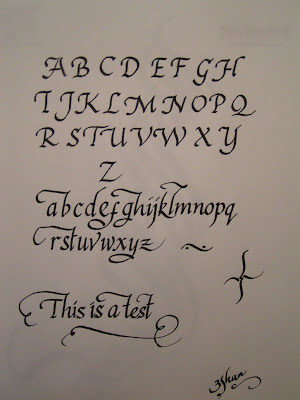 A B C D E F G H
I J K L M N O P Q
R S T U V W X Y
Z
a b c d e f g h i j k l m n o p q
r s t u v w x y z
This is a test